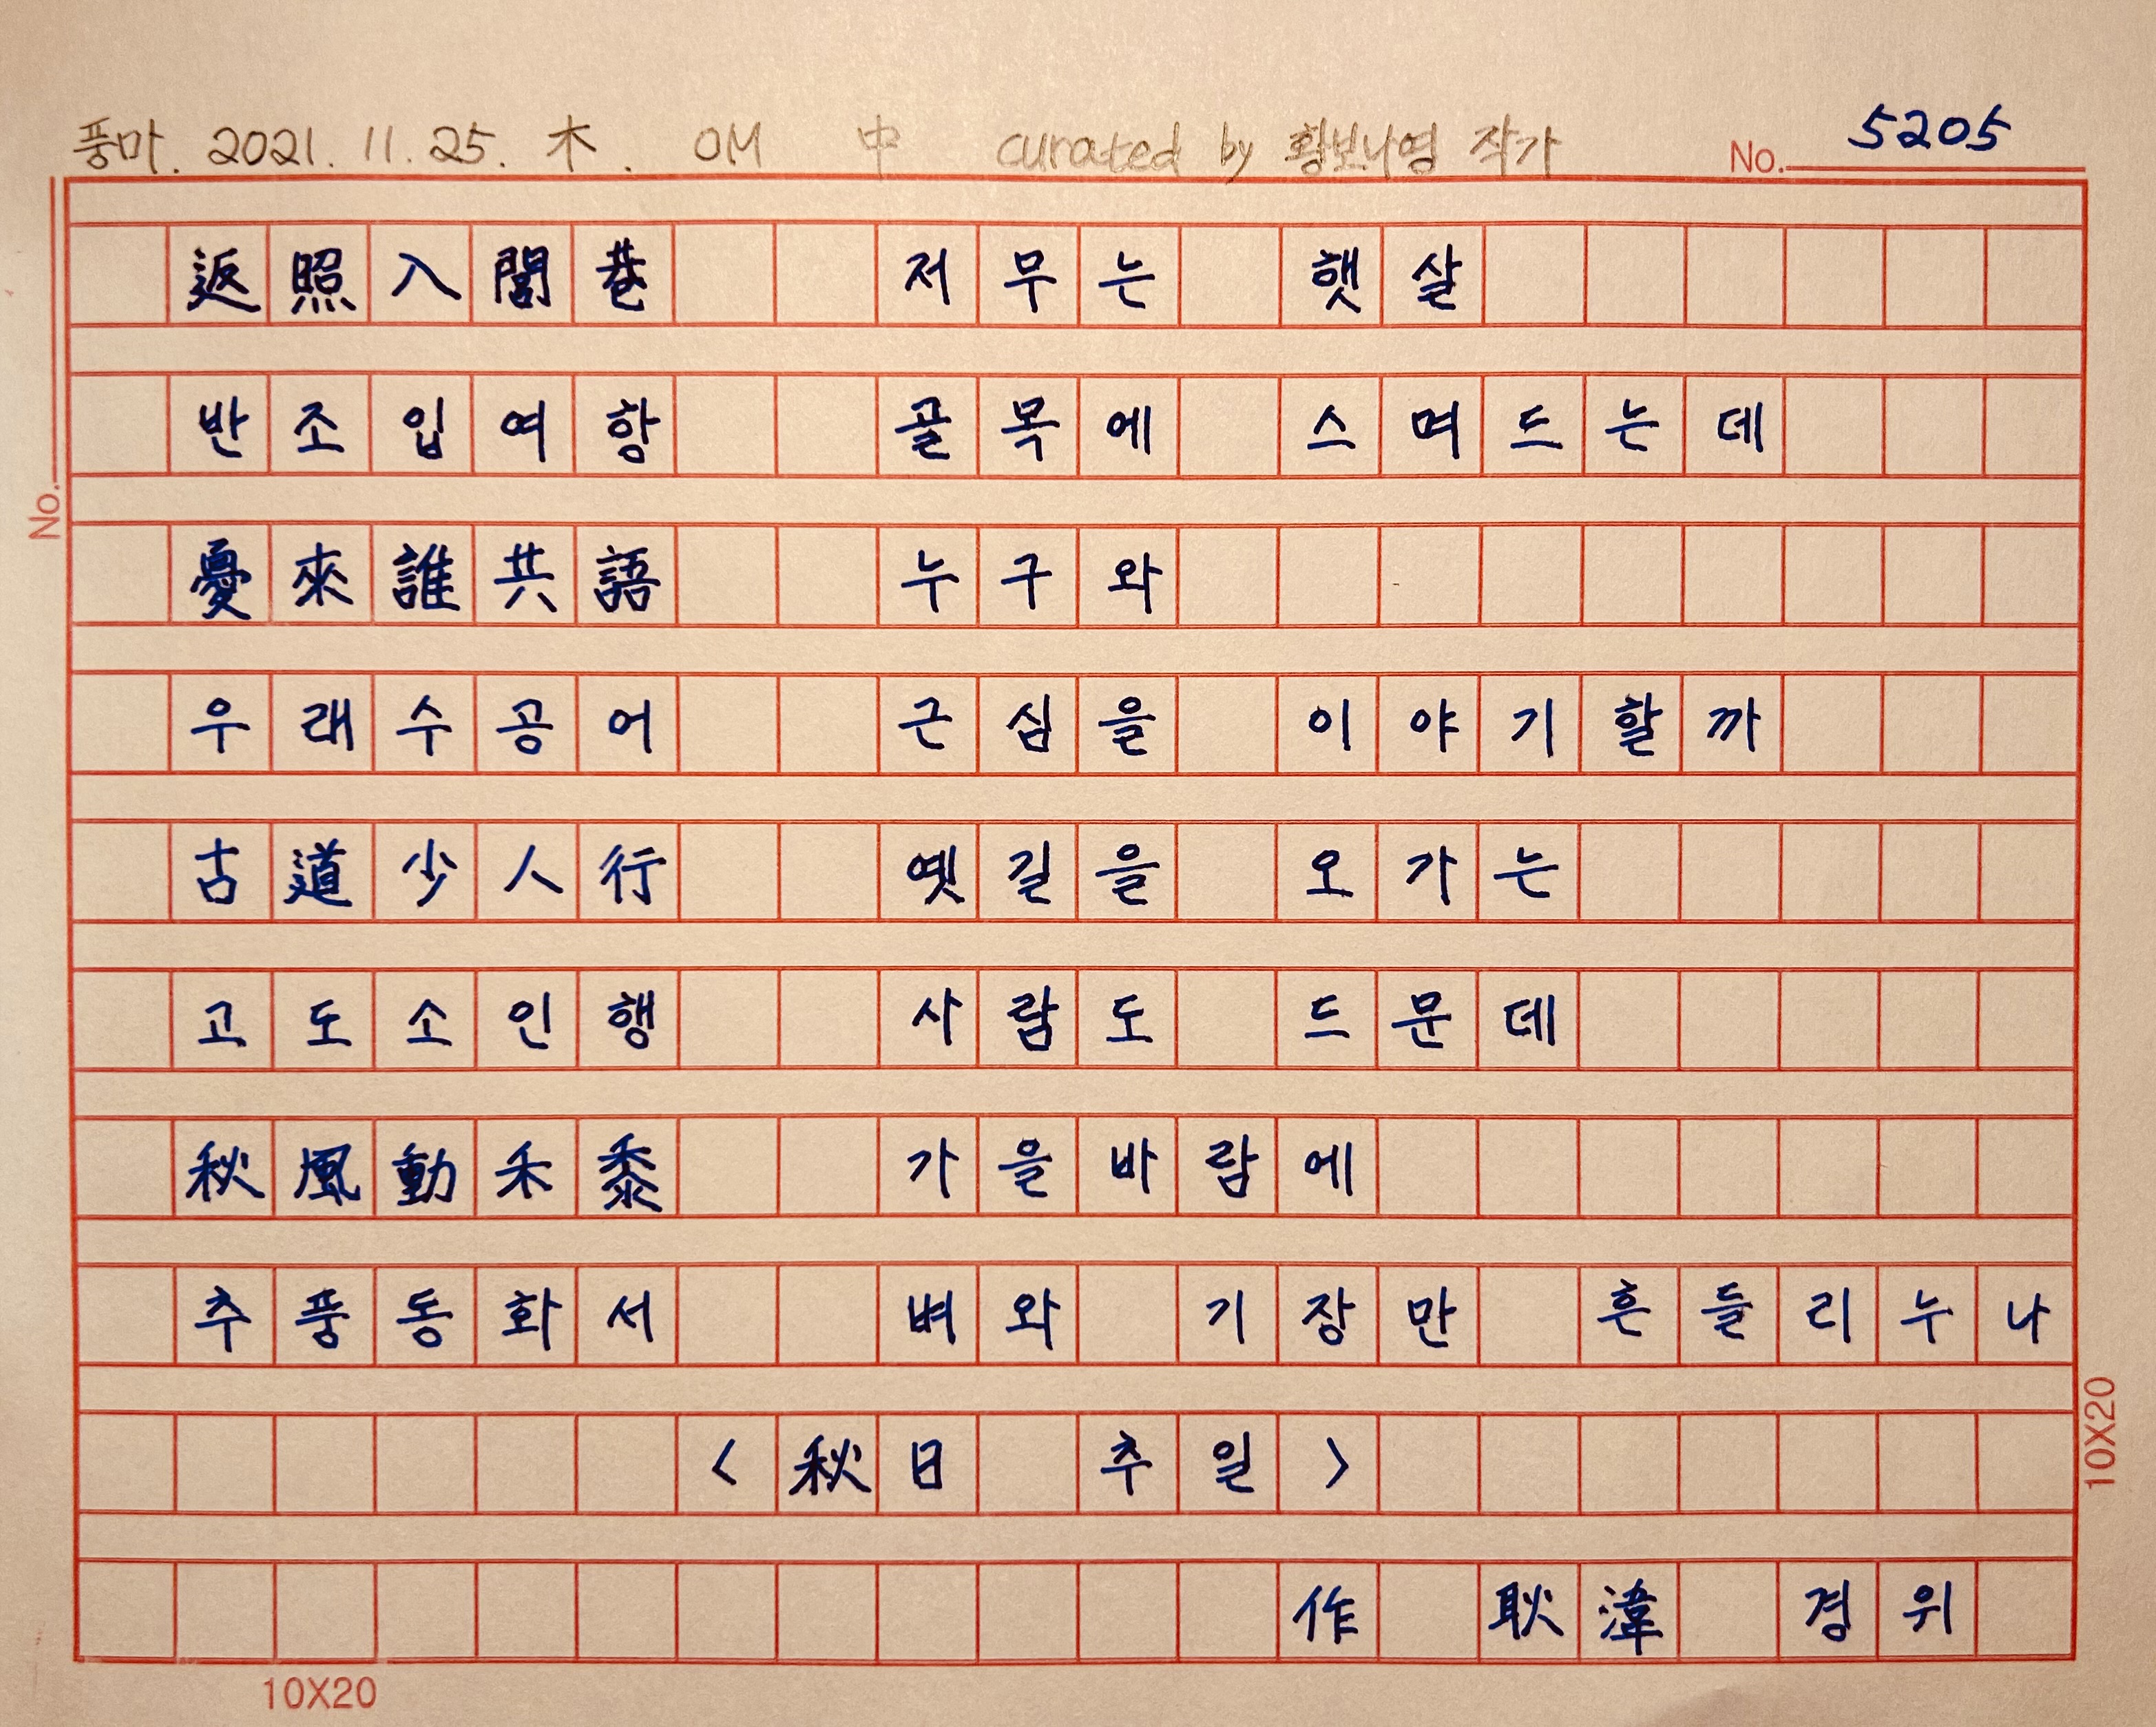 풍마. 2021. 11. 25. 木. OM 中 curated by 황보나영 작가 No. 5205
返照入閭巷 저무는 햇살
반조입여항 골목에 스며드는데
No.
憂來誰共語 누구와
우래수공어 근심을 이야기할까
古道少人行 옛길을 오가는
고도소인행 사람도 드문데
秋風動禾黍 가을바람에
추풍동화서 벼와 기장만 흔들리누나
<秋日 추일>
10X20
作 耿湋 경위
10X20